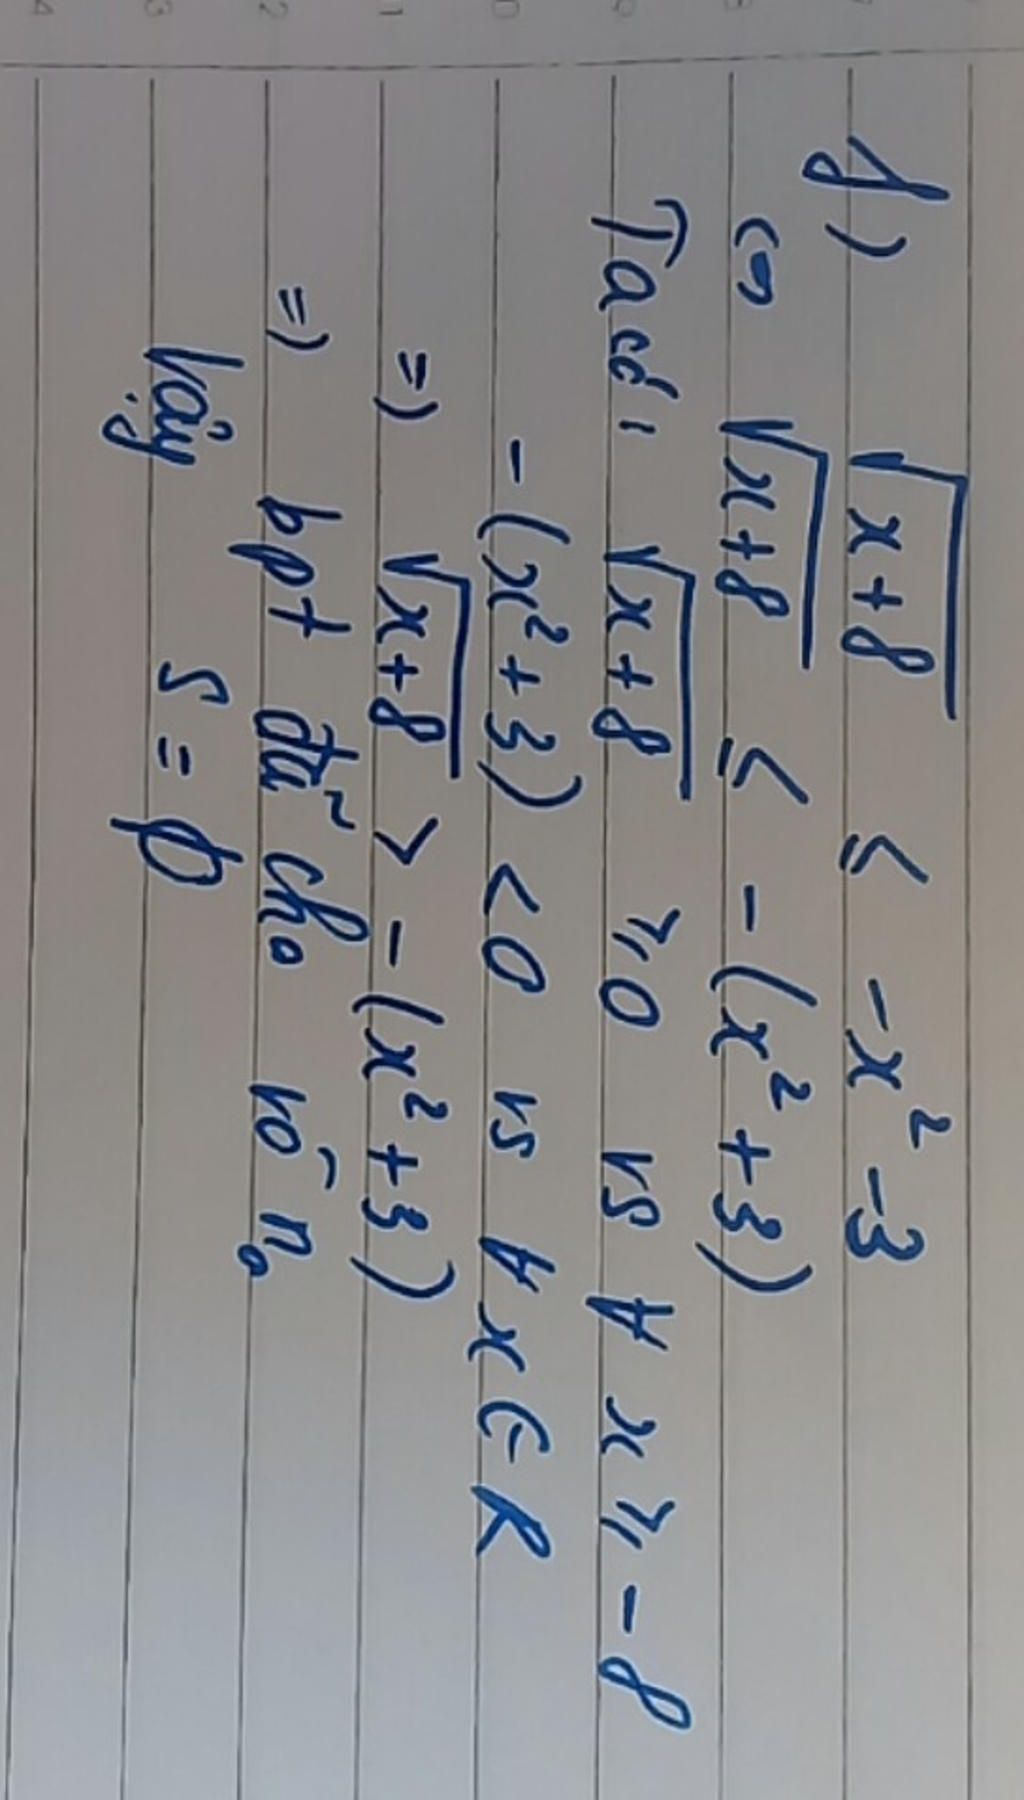 f) √x+8 ≤ -x² -3
⇔ √x+8 ≤ -(x²+3)
Ta có: √x+8 ≥0 vs ∀ x ≥ -8
-(x²+3) <0 vs ∀ x ∈ R
=) √x+8 > -(x²+3)
=) bpt đã cho vô no
Vậy S = ∅